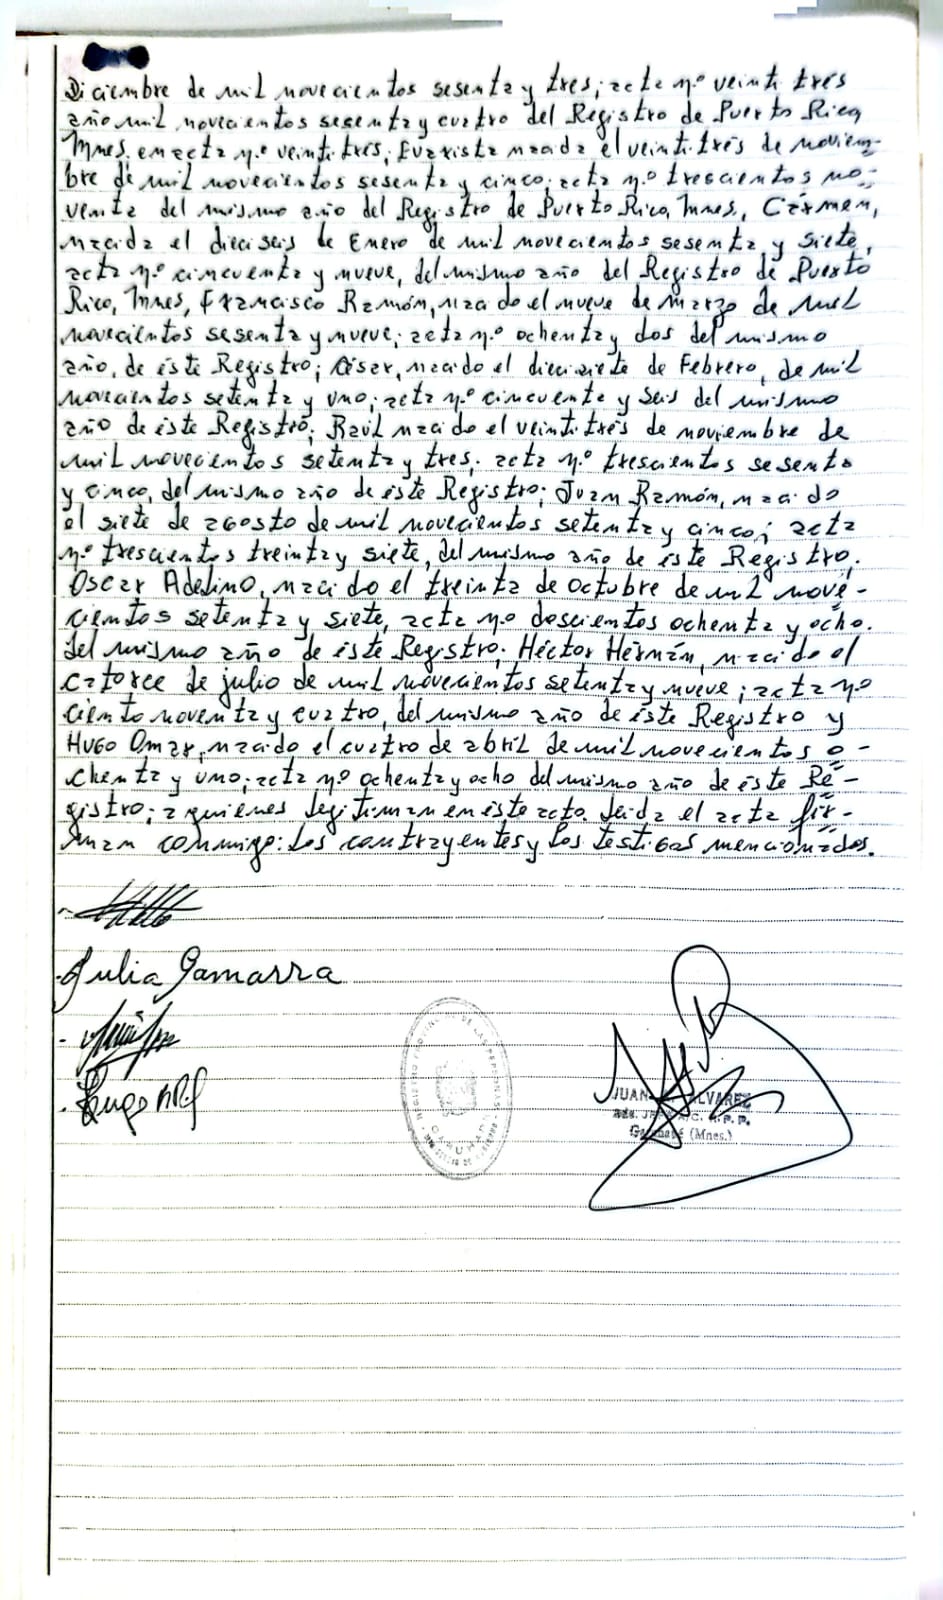 Diciembre de mil novecientos sesenta y tres; acta nº veintitrés
año mil novecientos sesenta y cuatro del Registro de Puerto Rico,
Mnes, en acta nº veintitrés; Evarista nacida el veintitrés de noviem-
bre de mil novecientos sesenta y cinco; acta nº trescientos no-
venta del mismo año del Registro de Puerto Rico, Mnes, Cármen,
nacida el dieciseis de Enero de mil novecientos sesenta y siete,
acta nº cincuenta y nueve, del mismo año del Registro de Puerto
Rico, Mnes, Francisco Ramón, nacido el nueve de marzo de mil
novecientos sesenta y nueve; acta nº ochenta y dos del mismo
año, de éste Registro; César, nacido el diecisiete de Febrero, de mil
novecientos setenta y uno; acta nº cincuenta y seis del mismo
año de éste Registro; Raúl nacido el veintitrés de noviembre de
mil novecientos setenta y tres; acta nº trescientos sesenta
y cinco, del mismo año de éste Registro; Juan Ramón, nacido
el siete de agosto de mil novecientos setenta y cinco; acta
nº trescientos treinta y siete, del mismo año de éste Registro;
Oscar Adelino, nacido el treinta de octubre de mil nove-
cientos setenta y siete, acta nº doscientos ochenta y ocho.
del mismo año de éste Registro; Héctor Hérnán, nacido el
catorce de julio de mil novecientos setenta y nueve; acta nº
ciento noventa y cuatro, del mismo año de éste Registro y
Hugo Omar, nacido el cuatro de abril de mil novecientos o-
chenta y uno; acta nº ochenta y ocho del mismo año de éste Re-
gistro; a quienes legitiman en éste acto. Leida el acta fir-
man conmigo: los contrayentes y los testigos mencionados.
Julia Gamarra
Hugo
JUAN ALVAREZ
(Mnes.)